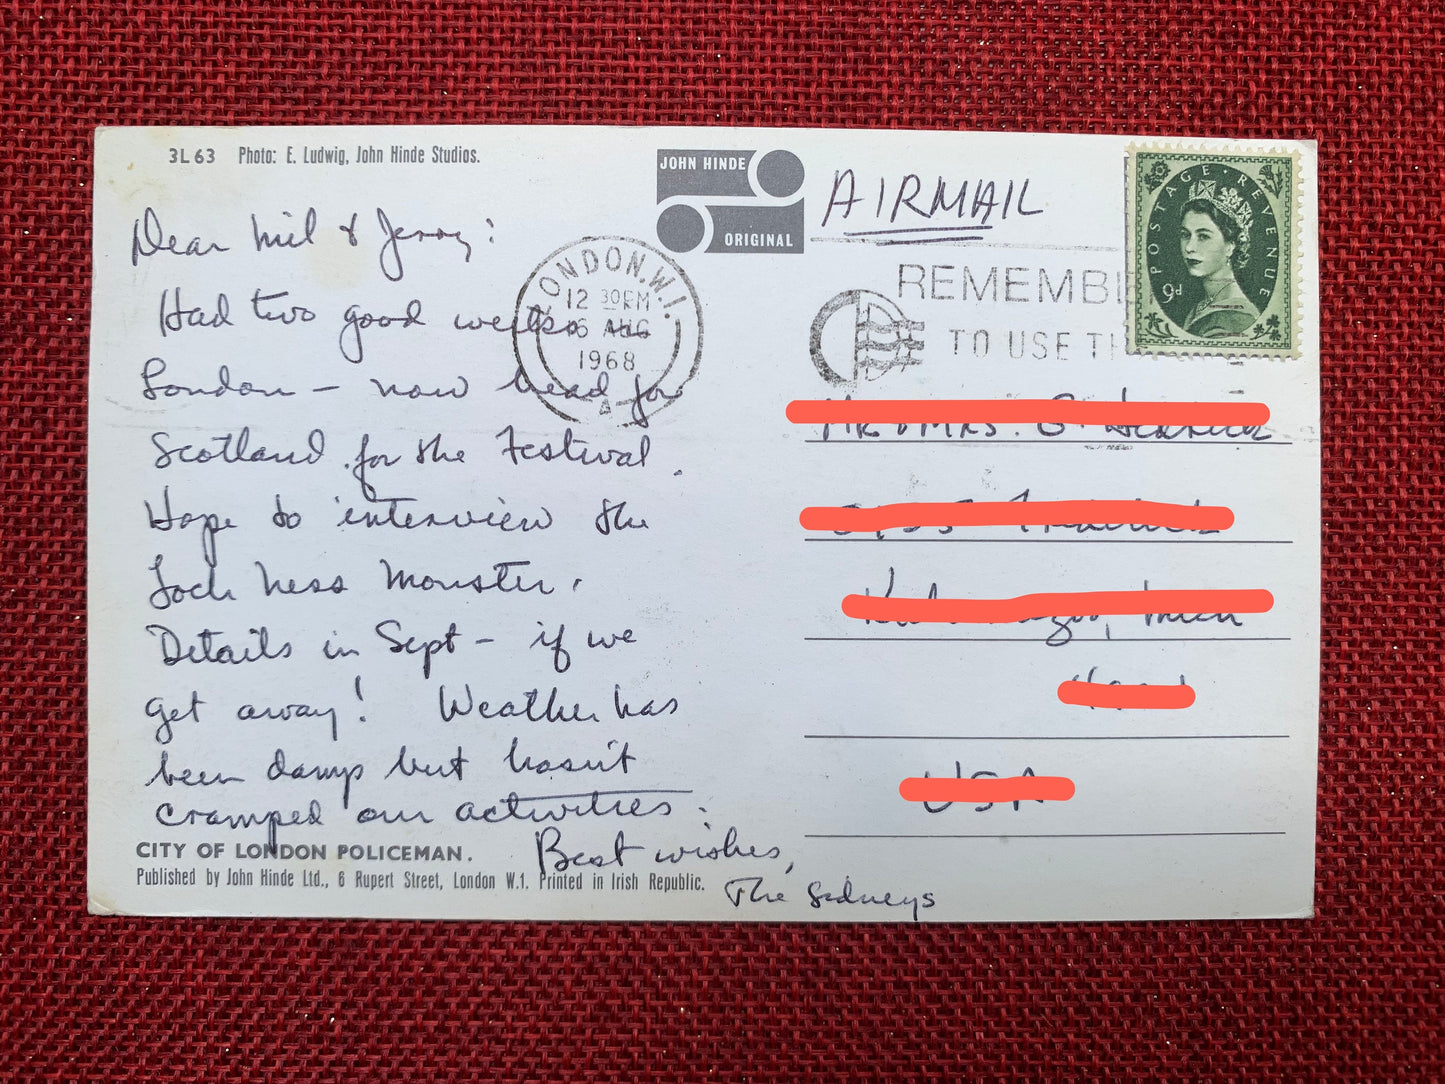 3L63 Photo: E. Ludwig, John Hinde Studios.
JOHN HINDE
ORIGINAL
AIRMAIL
POSTAGE · REVENUE
9d
LONDON. W.1.
12 30PM
AUG
1968
A
REMEMB
TO USE T
Dear Mil & Jerry:
Had two good weeks
London – now head for
Scotland for the Festival.
Hope to interview the
Loch Ness Monster.
Details in Sept – if we
get away! Weather has
been damp but hasn't
cramped our activities.
Best wishes,
The Sidneys
CITY OF LONDON POLICEMAN.
Published by John Hinde Ltd., 6 Rupert Street, London W.1. Printed in Irish Republic.
USA